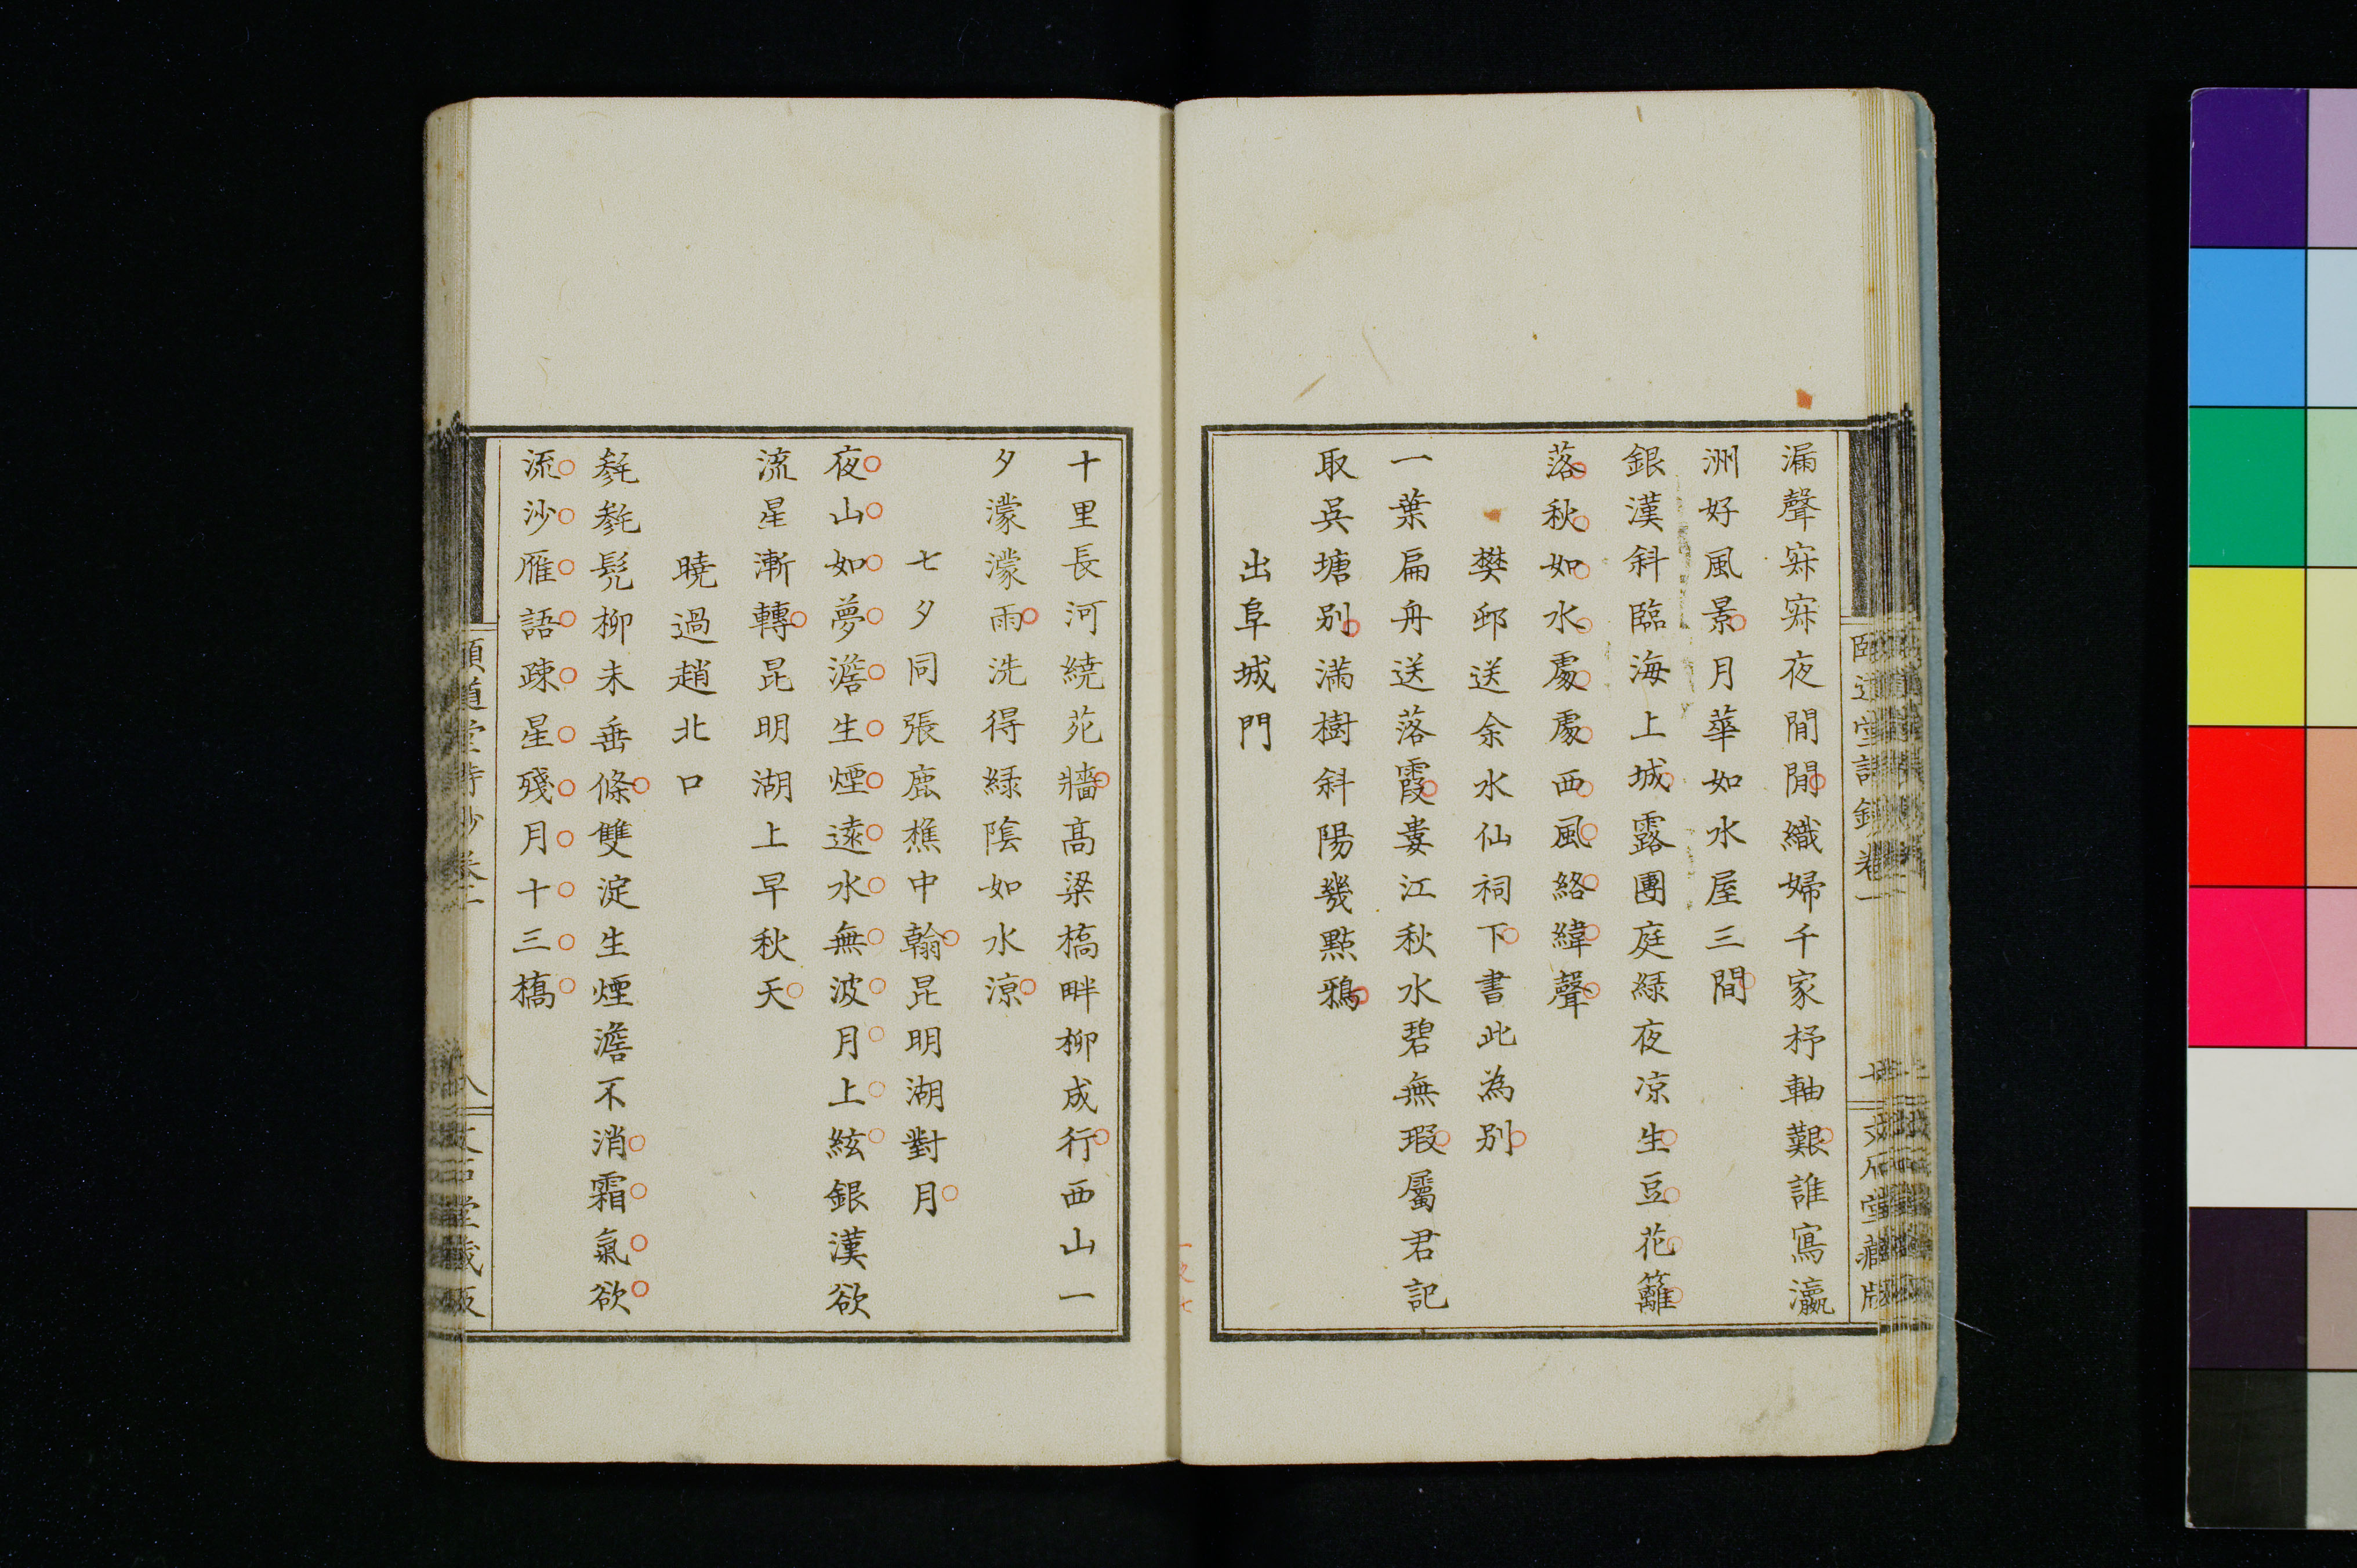 漏聲寂寂夜閒閒織婦千家杼軸艱誰寫瀛
洲好風景月華如水屋三間
銀漢斜臨海上城露團庭綠夜凉生豆花籬
落秋如水處處西風絡緯聲
樊邨送余水仙祠下書此為別
一葉扁舟送落霞婁江秋水碧無瑕屬君記
取吳塘別滿樹斜陽幾點鴉
出阜城門
十里長河繞苑牆高梁橋畔柳成行西山一
夕濛濛雨洗得綠陰如水涼
七夕同張鹿樵中翰昆明湖對月
夜山如夢澹生煙遠水無波月上絃銀漢欲
流星漸轉昆明湖上早秋天
曉過趙北口
毿毿髡柳未垂條雙淀生煙澹不消霜氣欲
流沙雁語疎星殘月十三橋
頤道堂詩鈔卷二
八